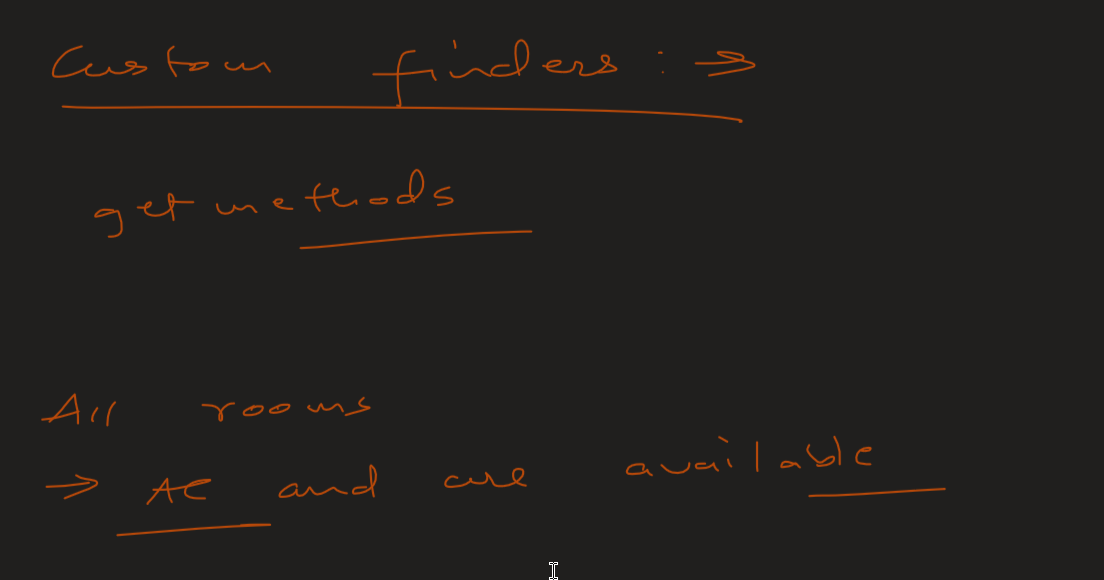 Custom finders : ⇒
get methods
All rooms
→ AC and are available